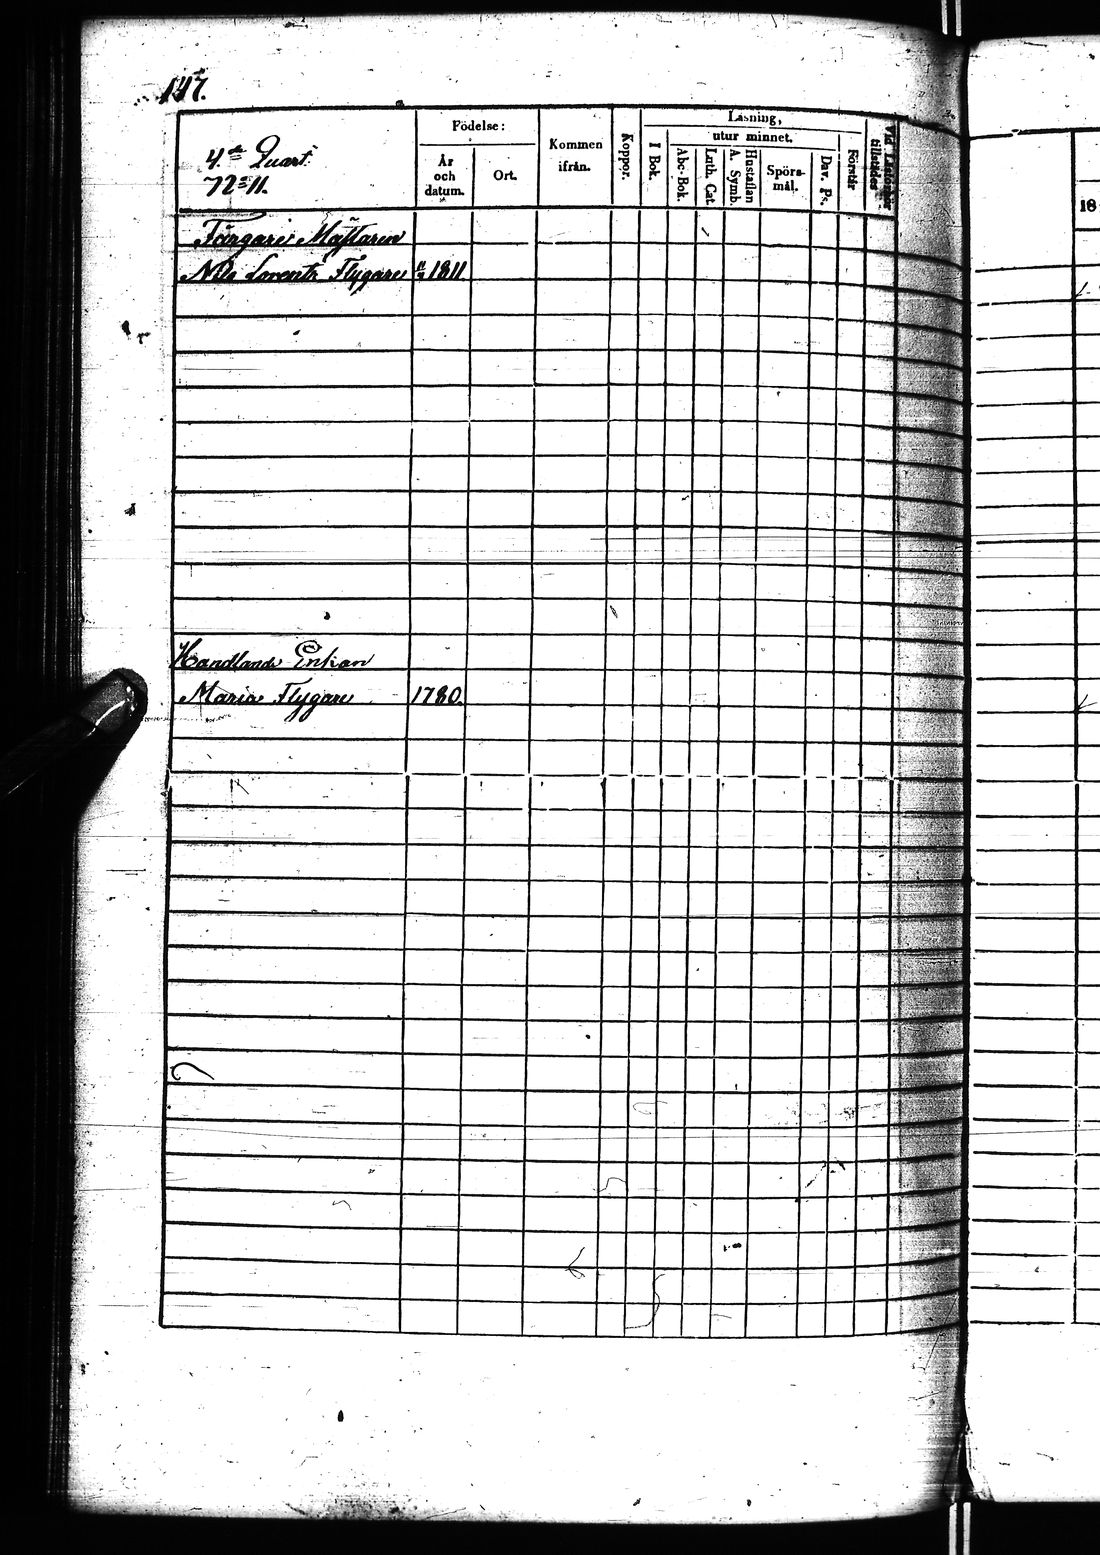 147.
Läsning,
Födelse:
utur minnet.
4de Quart.
Kommen ifrån.
Koppor.
I Bok.
Abc-Bok.
Luth. Cat.
Hustaflan A. Symb.
Spörs-mål.
Dav. Ps.
Förstår
Vid Läsförhör tillstädes
År och datum.
Ort.
18
Färgare Mästaren
Nils Lorentz Flygare 1811.
Handlands Enkan
Maria Flygare 1780.